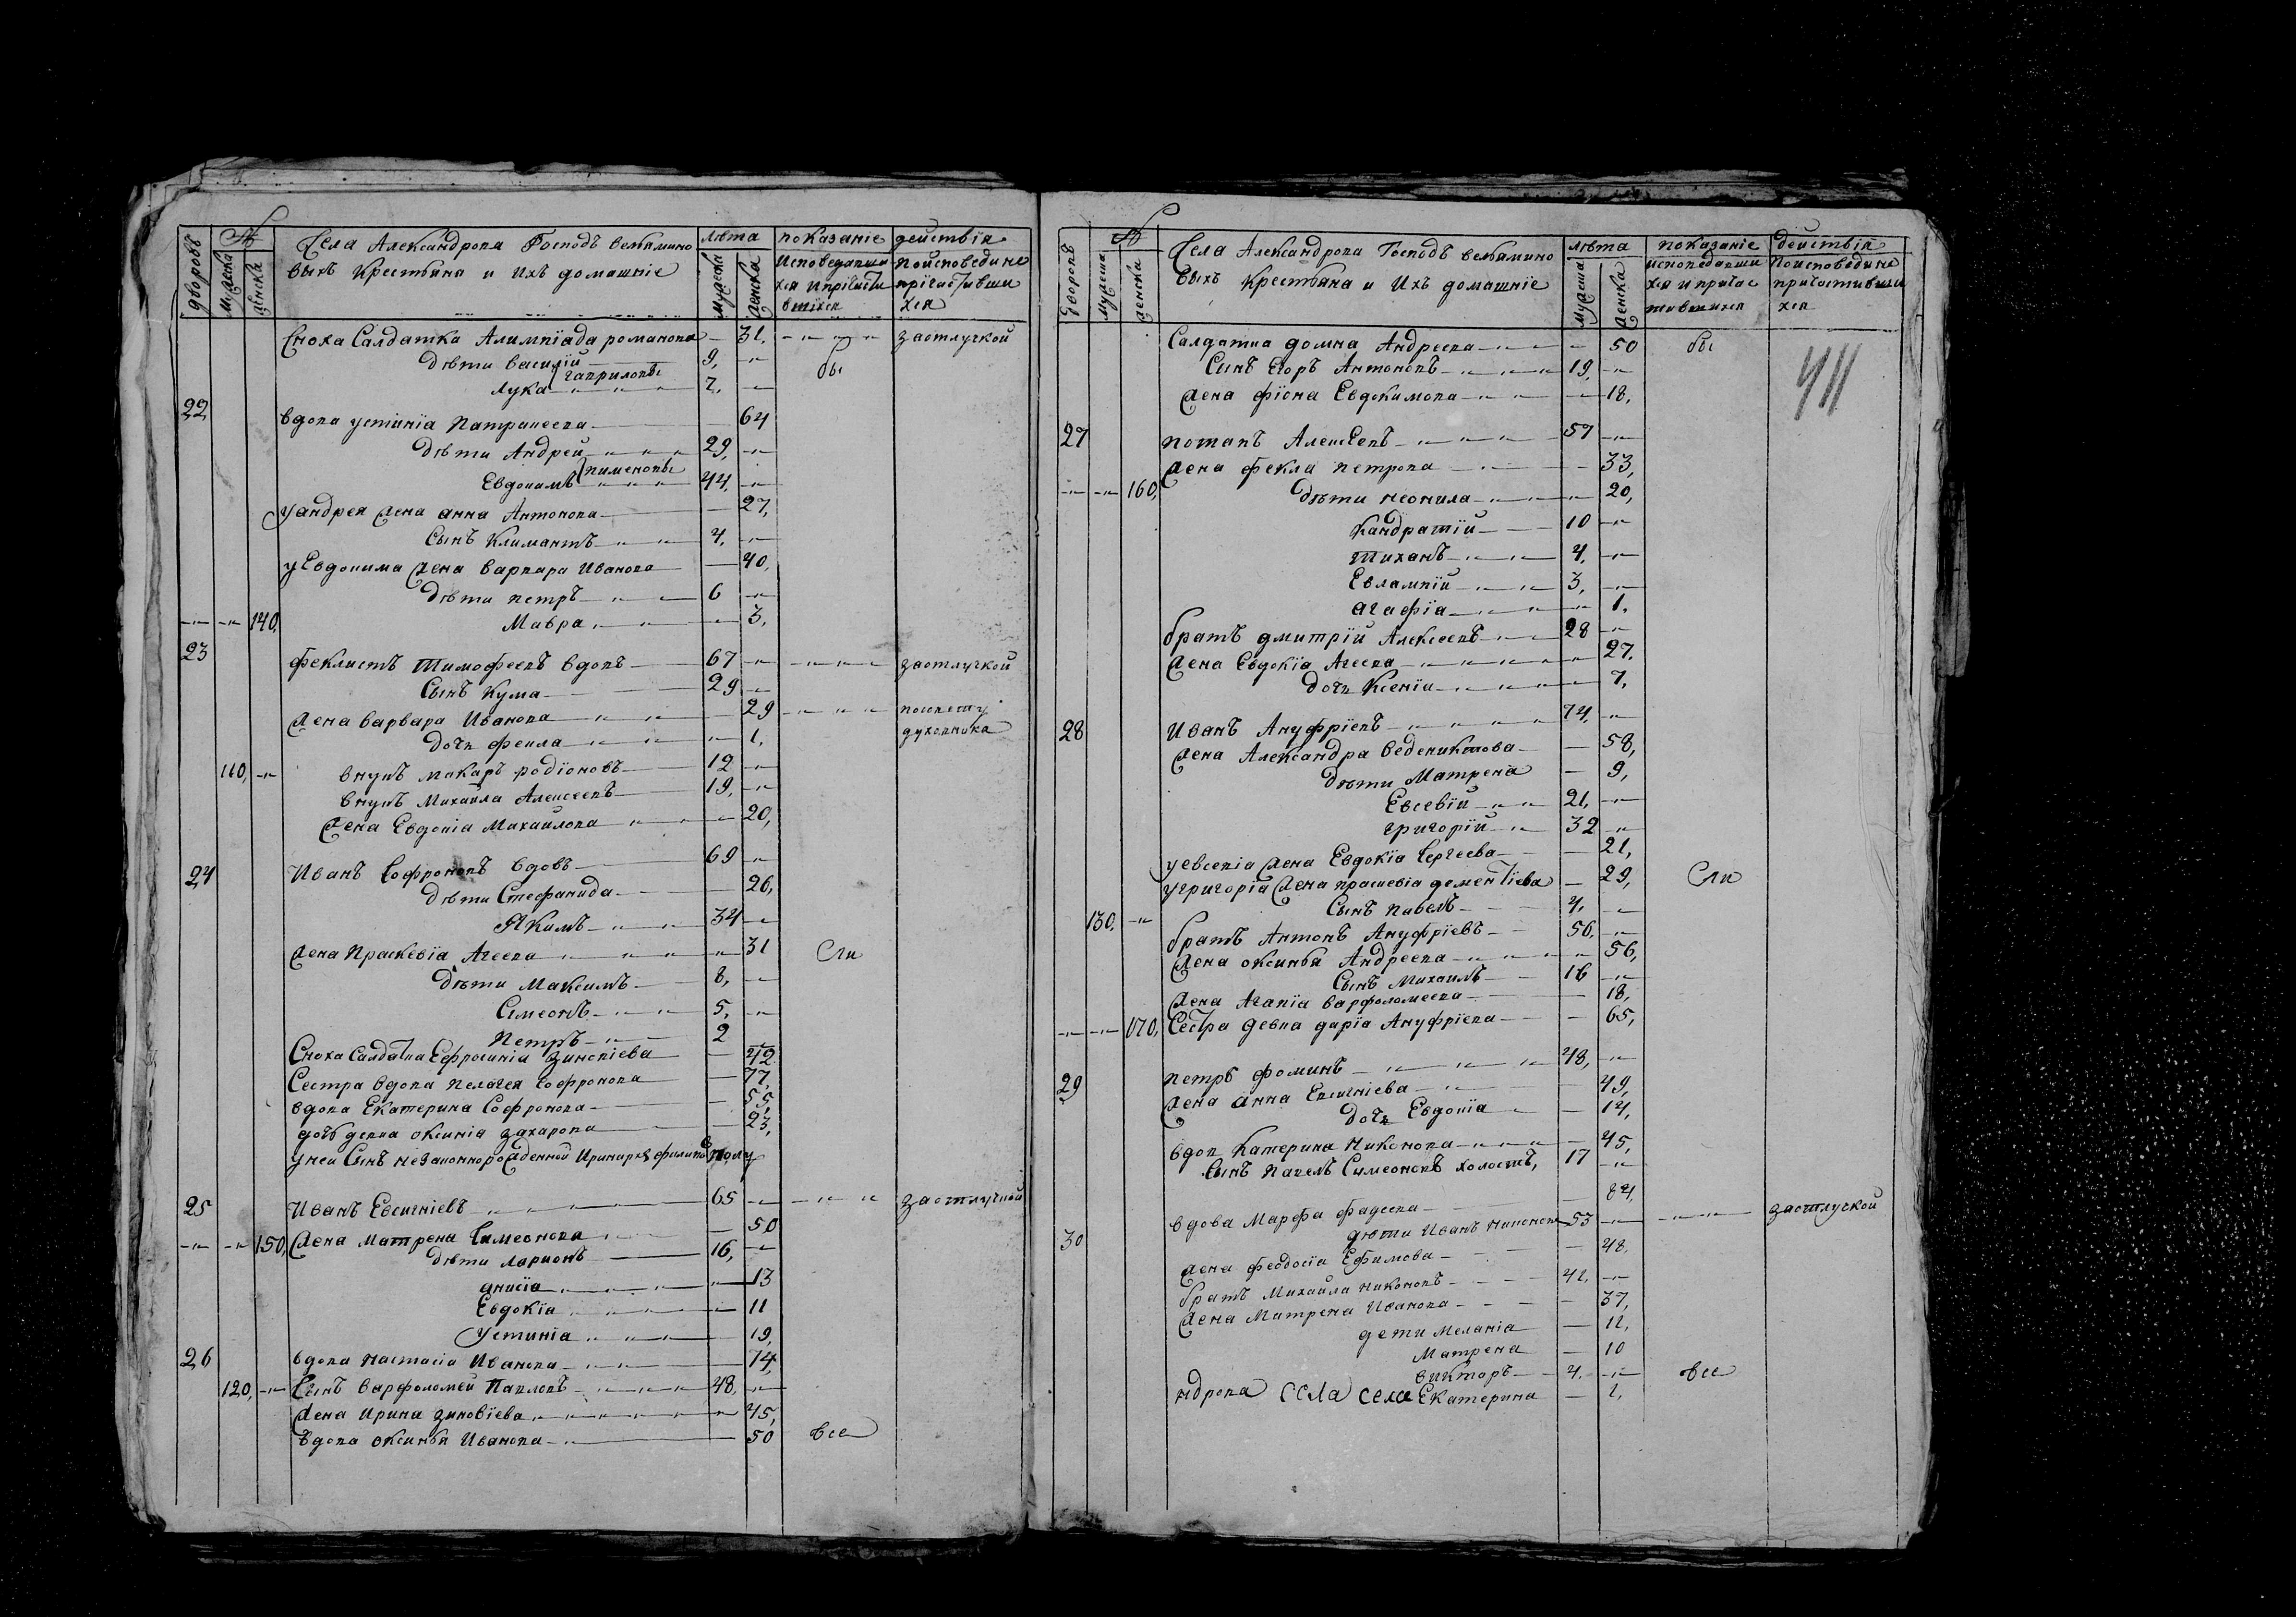 дворовъ № мужеска женска Села Александрова Господъ вельямино лѣта показаніе действія
выхъ Крестьяна и Ихъ домашніе мужеска женска Исповедавши поисповедине
хся ипричасти причастивши
вшихся хся
Сноха Салдатка Алимпіада романова 31, заотлучкой
дѣти василій 9, бы
Лука гавриловы 7,
22 вдова устинія Патрикеева 64
дѣти Андрей 29,
Евдокимъ пименовы 44,
у андрея жена анна Антонова 27,
Сынъ Климантъ 4,
у Евдокима жена варвара Иванова 40,
дѣти петръ 6
140, Мавра 3,
23 феклистъ тимофеевъ вдовъ 67 заотлучкой
Сынъ Кузма 29
жена варвара Иванова 29 посовету
дочь фекла 1, духовника
110, внукъ макаръ родіоновъ 12
внукъ михайла Алексеевъ 19,
жена Евдокіа Михайлова 20,
24 Иванъ Софроновъ вдовъ 69
дѣти Стефанида 26,
Якимъ 34
жена Праскевіа Агеева 31 Сли
дѣти Максимъ 8,
Симеонъ 5,
Петръ 2
Сноха Салдатка Ефросиніа зиновіева 42
Сестра вдова пелагея Софронова 77,
вдова Екатерина Софронова 55,
дочь девка оксиніа захарова 23,
унеи Сынъ незаконнорожденной Иринархъ филипов полу
25 Иванъ Евсигніевъ 65 заотлучкой
150, жена матрена Симеонова 50
дѣти ларионъ 16,
анисіа 13
Евдокіа 11
Устиніа 19,
26 вдова настасіа Иванова 74,
120, Сынъ варфоломей Павловъ 48,
жена ирина зиновіева 45,
вдова оксинья Иванова 50 все
дворовъ № мужеска женска Села Александрова Господъ вельямино лѣта показаніе действія
выхъ Крестьяна и Ихъ домашніе мужеска женска исповедавши поисповедине
хся и причас причастивши
тившихся хся
Салдатка домна Андреева 50 бы
Сынъ Егоръ Антоновъ 19,
жена фіона Евдокимова 18,
411
27 потапъ Алексеевъ 57
жена фекла петрова 33,
160, дѣти неонила 20,
Кандратій 10
тиханъ 4,
Евлампій 3,
агафіа 1,
братъ дмитрій Алексеевъ 28
жена Евдокіа Агеева 27,
дочь Ксеніа 7,
28 Иванъ Ануфріевъ 74,
жена Александра веденихтова 58,
дѣти Матрена 9,
Евсевій 21,
григорій 32
у евсевіа жена Евдокіа Сергеева 21,
у григоріа жена прасковіа дементіева 29, Сли
130, Сынъ павелъ 4,
братъ Антонъ Ануфріевъ 56,
жена оксинья Андреева 56,
Сынъ михаилъ 16
жена Агапіа варфоломеева 18,
170, Сестра девка даріа Ануфріева 65,
29 петръ фоминъ 48,
жена анна Евсигніева 49,
дочь Евдокіа 14,
вдов Катерина никонова 45,
Сынъ павелъ Симеоновъ холостъ, 17
30 вдова Марфа фадеева 84,
дѣти Иванъ никоновъ 53 заотлучкой
жена феодосіа Ефимова 48,
братъ михайла никоновъ 42,
жена матрена Иванова 37,
дети меланіа 12,
Матрена 10
викторъ 4, все
ндрова ССЛа села Екатерина 2,